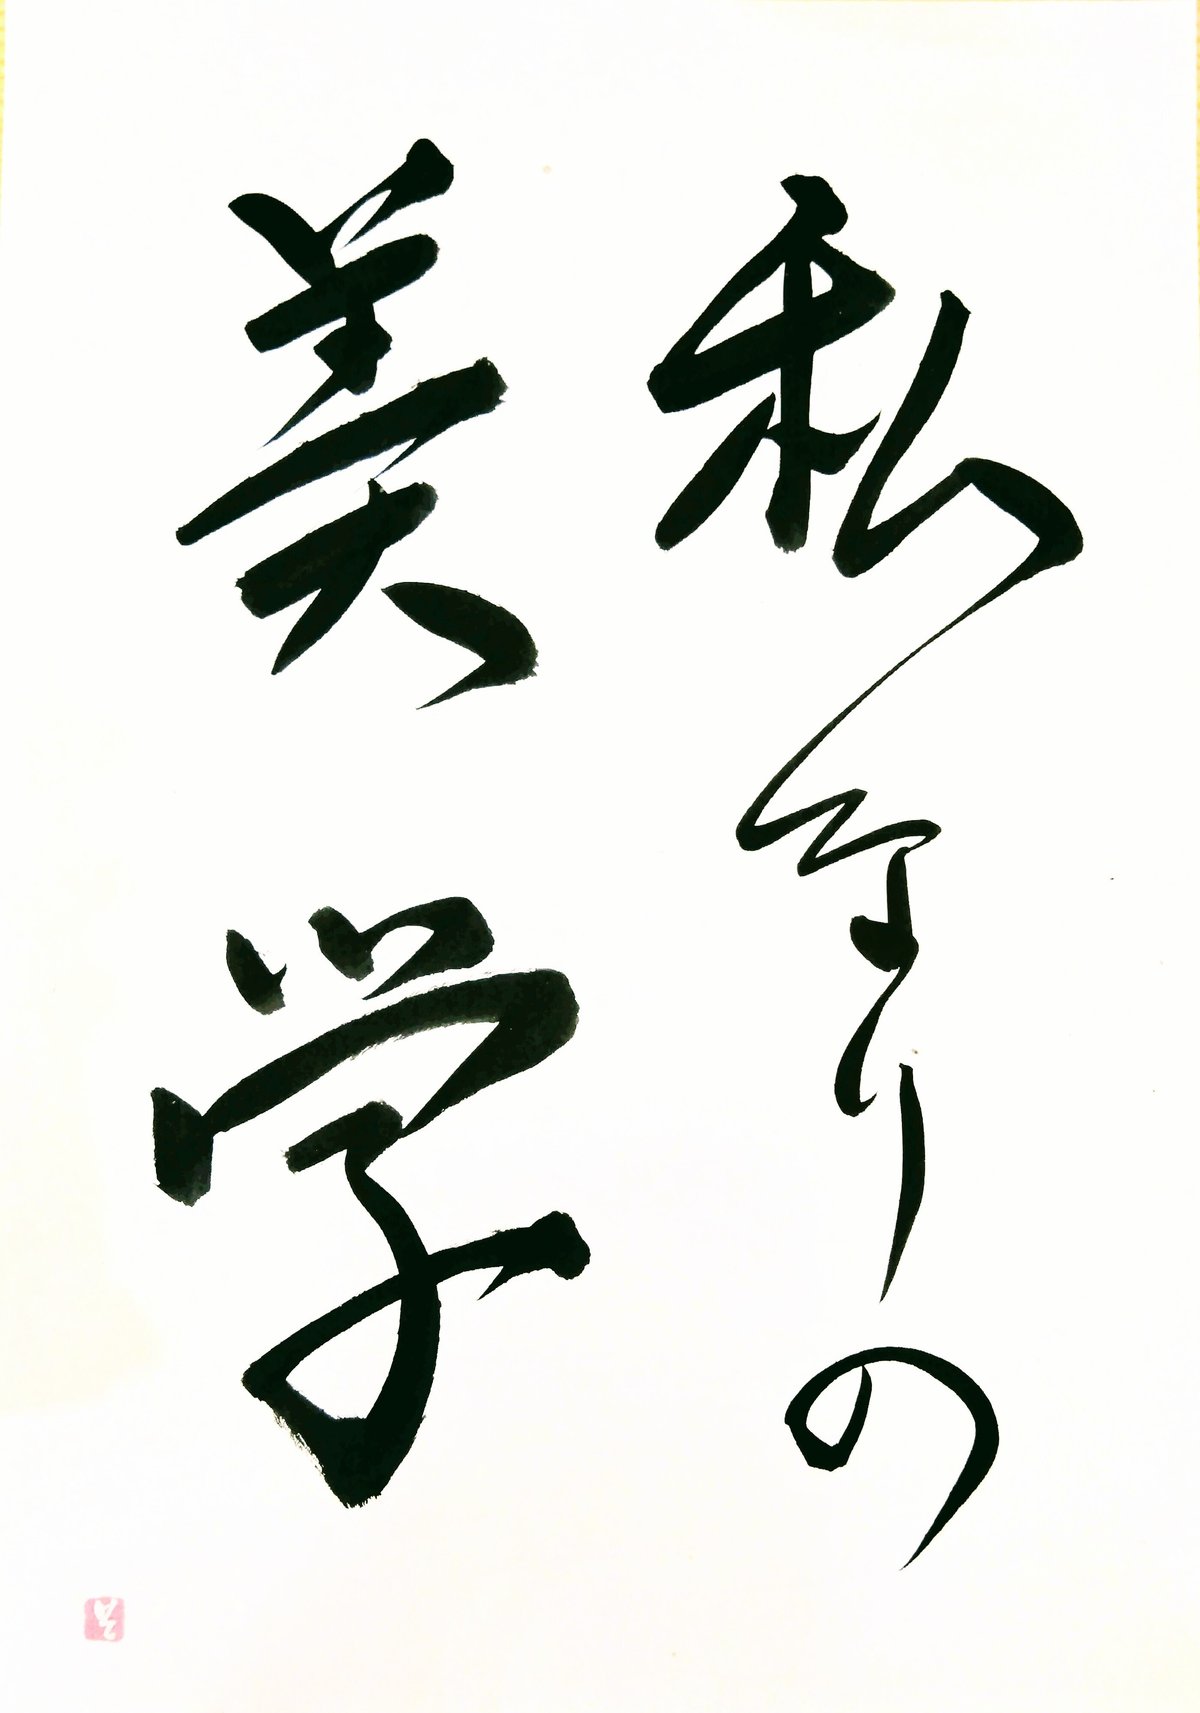 私なりの
美学